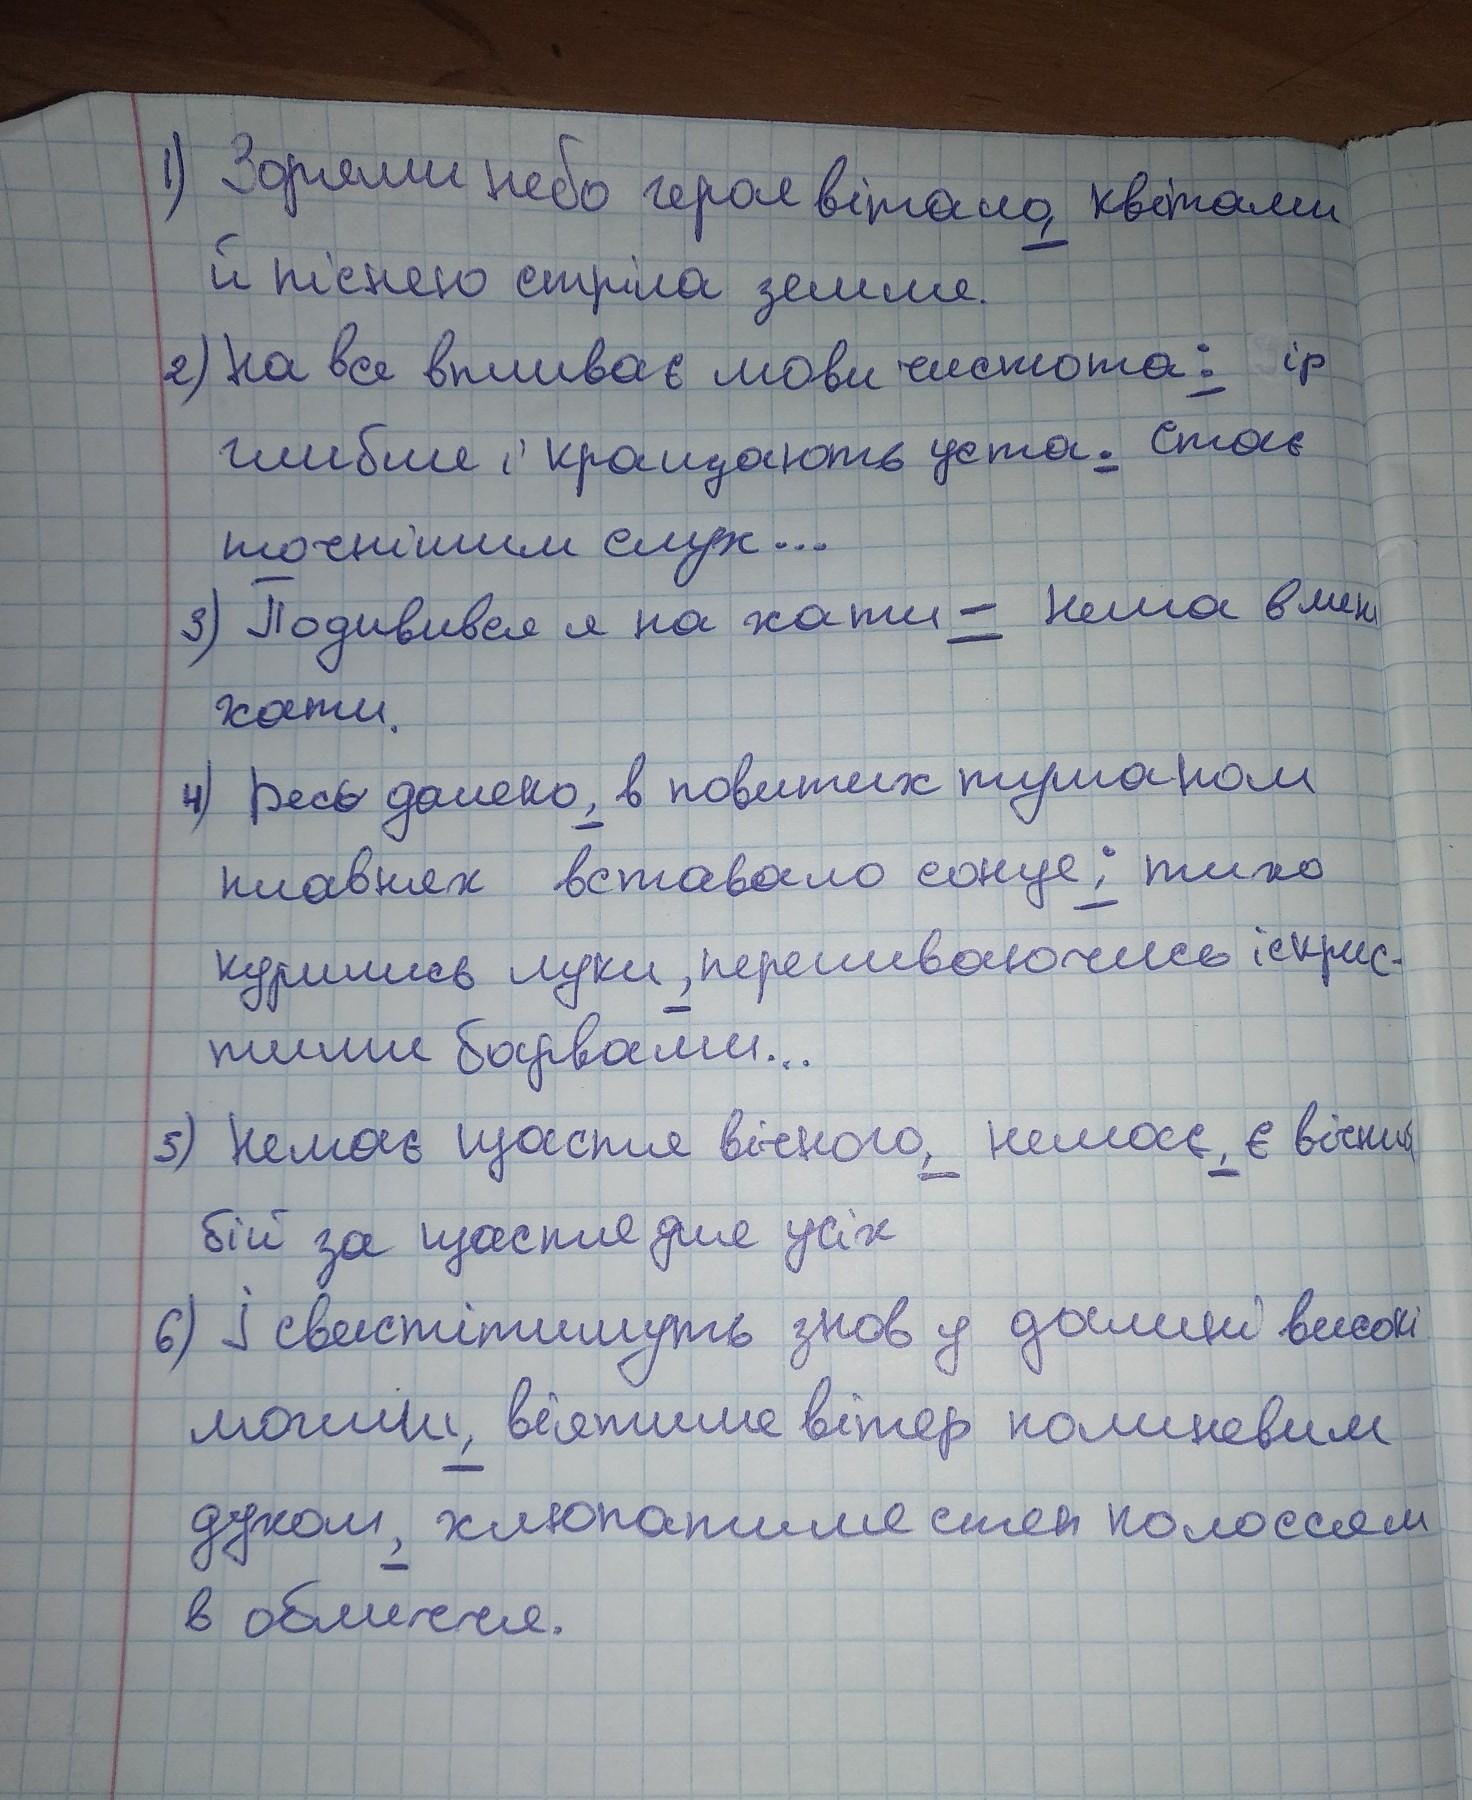 1) Зорями небо героя вітало, квітами
й піснею стріла земля.
2) На все впливає мови чистота: ір
глибше і кращають уста. Стає
точнішим слух...
3) Подивився я на хати – нема в мені
хати.
4) Десь далеко, в повитих туманом
плавнях вставало сонце; тихо
курились луки, переливаючись іскрис-
тими барвами...
5) Немає щастя вічного, немає, є вічний
бій за щастя для усіх
6) І свистітимуть знов у долині високі
могили, віятиме вітер полиневим
духом, хлюпатиме степ колоссям
в обличчя.